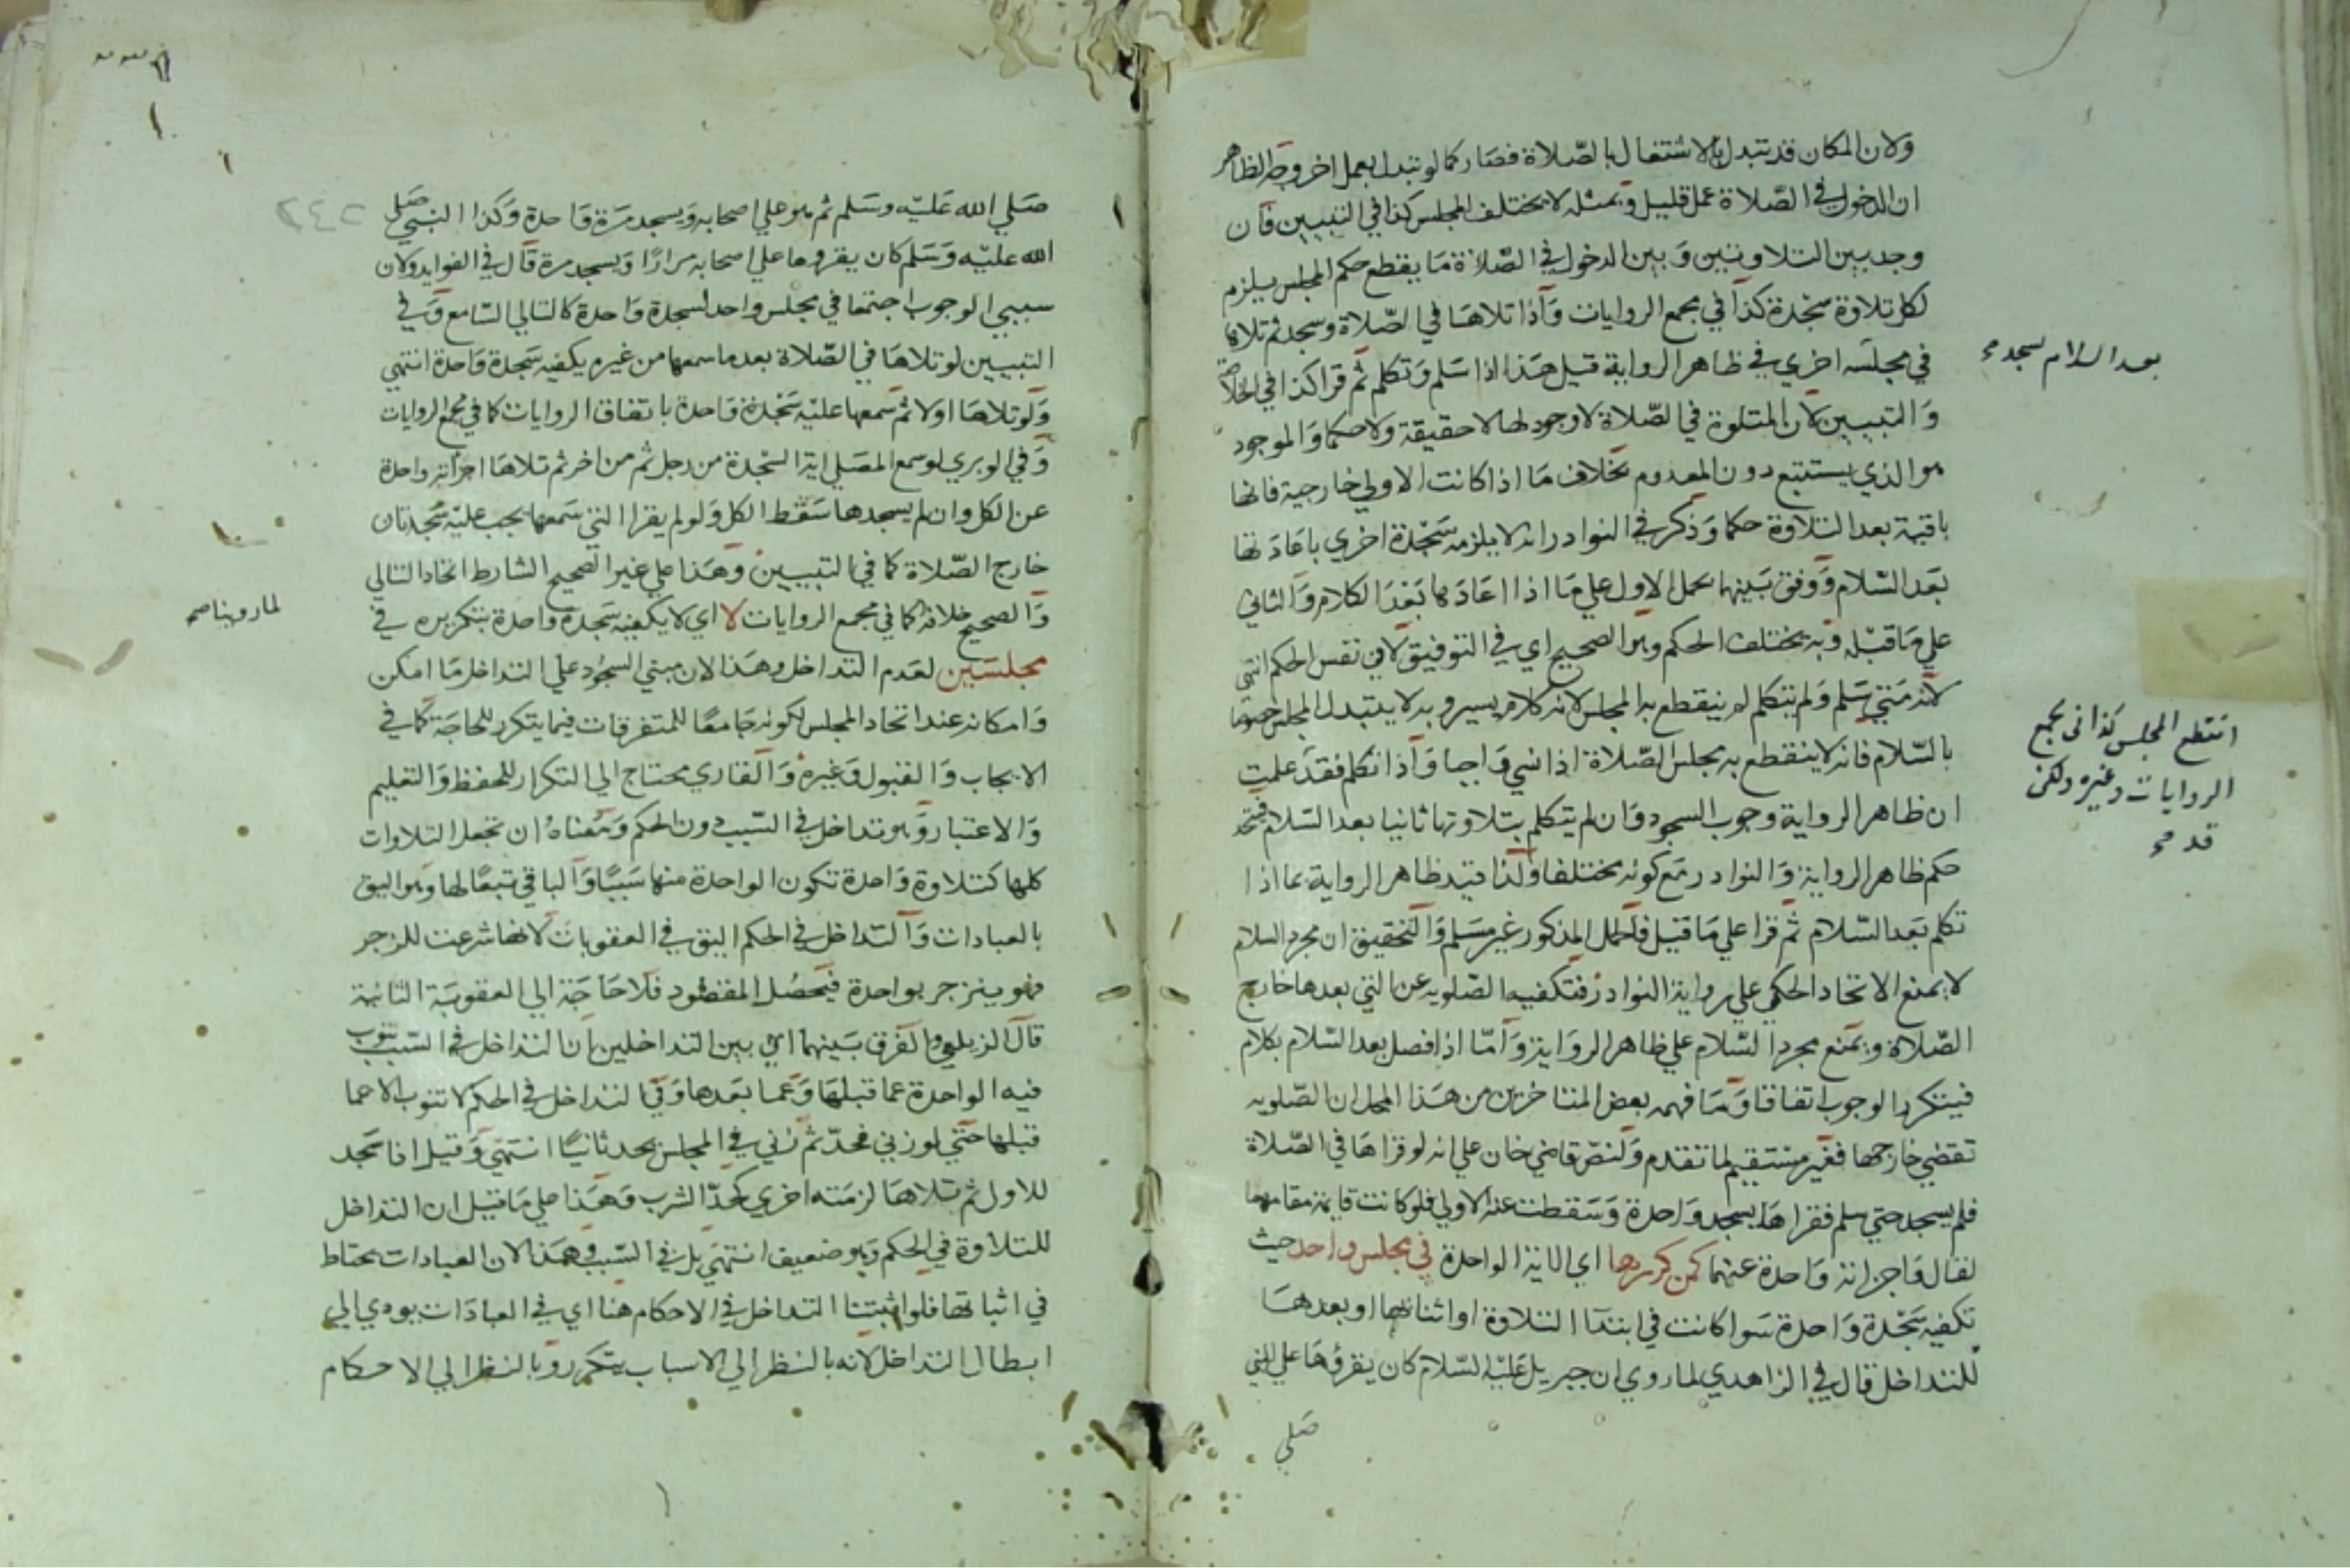 ولان المكان قد يتبدل بالاشتغال بالصلاة فصار كما لو تبدل بعمل اخر وجه الظاهر
ان الدخول في الصلاة عمل قليل وبمثله لا يختلف المجلس كذا في التبيين فان
وجد بين التلاوتين وبين الدخول في الصلاة ما يقطع حكم المجلس يلزم
لكل تلاوة سجدة كذا في مجمع الروايات واذا تلاها في الصلاة وسجد ثم تلاها
بعد السلام يسجد صح
في مجلسه اخري في ظاهر الرواية قيل هذا اذا سلم وتكلم ثم قرا كذا في الخلاصة
والتبيين لان المتلوة في الصلاة لا وجود لها لا حقيقة ولا حكما والموجود
هو الذي يستتبع دون المعدوم بخلاف ما اذا كانت الاولي خارجية فانها
باقية بعد التلاوة حكما وذكر في النوادر انه لا يلزمه سجدة اخري باعادتها
بعد السلام ووفق بينهما بحمل الاول علي ما اذا اعادها بعد الكلام والثاني
علي ما قبله وبه يختلف الحكم وهو الصحيح اي في التوفيق لا في نفس الحكم انتهي
لانه متي سلم ولم يتكلم لم ينقطع به المجلس لانه كلام يسير وبه لا يتبدل المجلس خصوصا
انقطع المجلس كذا في مجمع
الروايات وغيره ولكن
قد صح
بالسلام فانه لا ينقطع به مجلس الصلاة اذا نسي واجبا واذا تكلم فقد علمت
ان ظاهر الرواية وجوب السجود وان لم يتكلم بتلاوتها ثانيا بعد السلام فيتحد
حكم ظاهر الرواية والنوادر مع كونه مختلفا ولذا قيد ظاهر الرواية بما اذا
تكلم بعد السلام ثم قرا علي ما قيل فالحمل المذكور غير مسلم والتحقيق ان مجرد السلام
لا يمنع الاتحاد الحكمي علي رواية النوادر فتكفيه الصلوية عن التي بعدها خارج
الصلاة ويمنع مجرد السلام علي ظاهر الرواية واما اذا فصل بعد السلام بكلام
فيتكرر الوجوب اتفاقا وما فهمه بعض المتاخرين من هذا المحل ان الصلوية
تقضي خارجها فغير مستقيم لما تقدم ولنص قاضي خان علي انه لو قراها في الصلاة
فلم يسجد حتي سلم فقراها يسجد واحدة وسقطت عنه الاولي فلو كانت قايمة مقامها
لقال واجزاته واحدة عنهما كمن كررها اي الاية الواحدة في مجلس واحد حيث
تكفيه سجدة واحدة سوا كانت في ابتدا التلاوة او اثنائها او بعدها
للتداخل قال في الزاهدي لما روي ان جبريل عليه السلام كان يقرؤها علي النبي
صلي
صلي الله عليه وسلم ثم هو علي اصحابه ويسجد مرة واحدة وكذا النبي صلي
الله عليه وسلم كان يقروها علي اصحابه مرارا ويسجد مرة قال في الفوايد ولان
سببي الوجوب اجتمعا في مجلس واحد لسجدة واحدة كالتالي السامع وفي
التبيين لو تلاها في الصلاة بعد ما سمعها من غيره يكفيه سجدة واحدة انتهي
ولو تلاها اولا ثم سمعها عليه سجدة واحدة باتفاق الروايات كما في مجمع الروايات
وفي الوبري لو سمع المصلي اية السجدة من رجل ثم من اخر ثم تلاها اجزاته واحدة
عن الكل وان لم يسجدها سقط الكل ولو لم يقرا التي سمعها يجب عليه سجدتان
خارج الصلاة كما في التبيين وهذا علي غير الصحيح الشارط اتحاد التالي
والصحيح خلافه كما في مجمع الروايات لا اي لا يكفيه سجدة واحدة بتكريره في
لما روينا صح
مجلسين لعدم التداخل وهذا لان مبني السجود علي التداخل ما امكن
وامكانه عند اتحاد المجلس لكونه جامعا للمتفرقات فيما يتكرر للحاجة كما في
الايجاب والقبول وغيره والقاري محتاج الي التكرار للحفظ والتعليم
والاعتبار وهو تداخل في السبب دون الحكم ومعناه ان تجعل التلاوات
كلها كتلاوة واحدة تكون الواحدة منها سببا والباقي تبعا لها وهو اليق
بالعبادات والتداخل في الحكم اليق في العقوبات لانها شرعت للزجر
فهو ينزجر بواحدة فيحصل المقصود فلا حاجة الي العقوبة الثانية
قال الزيلعي والفرق بينهما اي بين التداخلين ان التداخل في السبب تنوب
فيه الواحدة عما قبلها وعما بعدها وفي التداخل في الحكم لا تنوب الا عما
قبلها حتي لو زني فحد ثم زني في المجلس يحد ثانيا انتهي وقيل اذا سجد
للاول ثم تلاها لزمته اخري كحد الشرب وهذا علي ما قيل ان التداخل
للتلاوة في الحكم وهو ضعيف انتهي بل في السبب وهذا لان العبادات يحتاط
في اثباتها فلو اثبتنا التداخل في الاحكام هنا اي في العبادات يودي الي
ابطال التداخل لانه بالنظر الي الاسباب يتكرر وبالنظر الي الاحكام